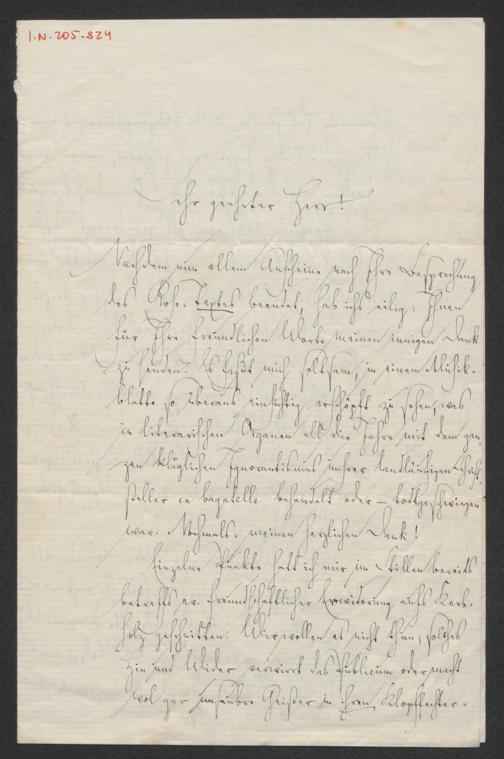 I.N. 205.824
Sehr geehrter Herr!
Nachdem nun allem Anscheine nach Ihre Besprechung
des Textes beendet, hab ich's eilig: Ihnen
für Ihre freundlichen Worte meinen innigen Dank
zu senden. Es läßt mich seltsam, in einem Musik-
blatte so überaus einsichtig erschöpft zu sehen, was
in literarischen Organen all die Jahre mit dem gan-
zen kläglichen Ignorantismus unsrer landläufigen Schrift-
steller en bagatelle behandelt oder – todtgeschwiegen
war. Nochmals: meinen herzlichen Dank!
Einzelne Punkte hatt ich mir im Stillen bereits
betreffs ev. freundschaftlicher Erwiderung aufs Kerb-
holz geschnitten. Wir wollen es nicht thun; solches
Hin und Wider verwirrt das Publicum oder macht
wol gar unsaubre Geister in ihrem Klopffechter-